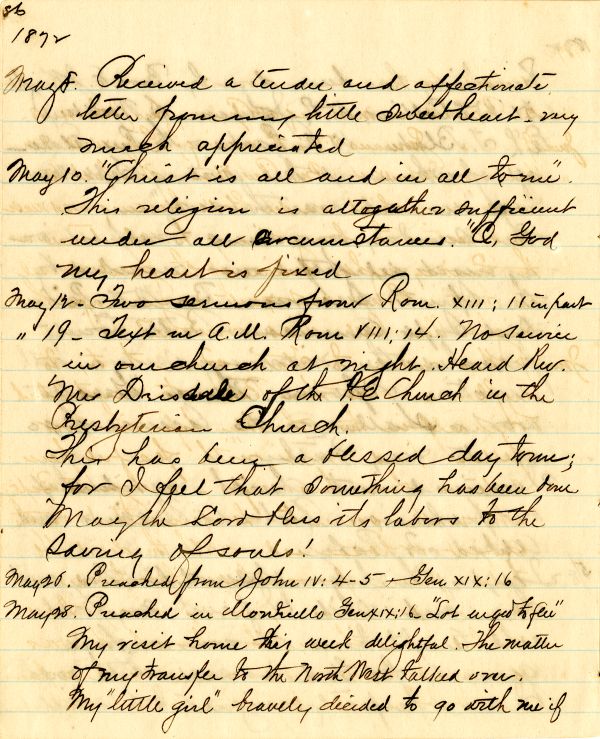 86
1872
May 8. Received a tender and affectionate
letter from my little sweetheart - very
much appreciated
May 10. "Christ is all and in all to me".
This religion is altogether sufficient
under all circumstances. "O, God
my heart is fixed
May 12 - Two sermons from Rom. XIII; 11 in part
" 19 - Text in A.M. Rom VIII; 14. No service
in our church at night. Heard Rev.
Mr Drisdale of the P.E Church in the
Presbyterian Church.
This has been a blessed day to me;
for I feel that something has been done
May the Lord bless its labors to the
saving of souls!
May 26. Preached from 1 John IV: 4-5 + Gen XIX: 16
May 28. Preached in Monticello Gen XIX: 16 - "Lot urged to flee"
My visit home this week delightful. The matter
of my transfer to the North West talked over.
My "little girl" bravely decided to go with me if